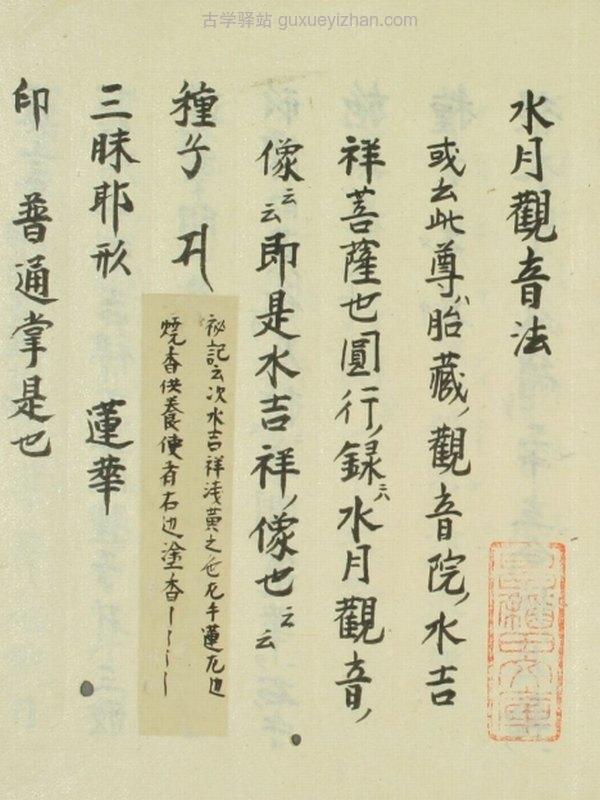 古学驿站 guxueyizhan.com
水月觀音法
或云此尊ハ胎藏ノ觀音院ノ水吉
祥菩薩也圓行ノ録ニハ水月觀音ノ
像云云即是水吉祥ノ像也云云
種子
秘記云次水吉祥浅黄之色左手蓮左边
燒香供養使者右边塗香
三昧耶形 蓮華
印 普通掌是也